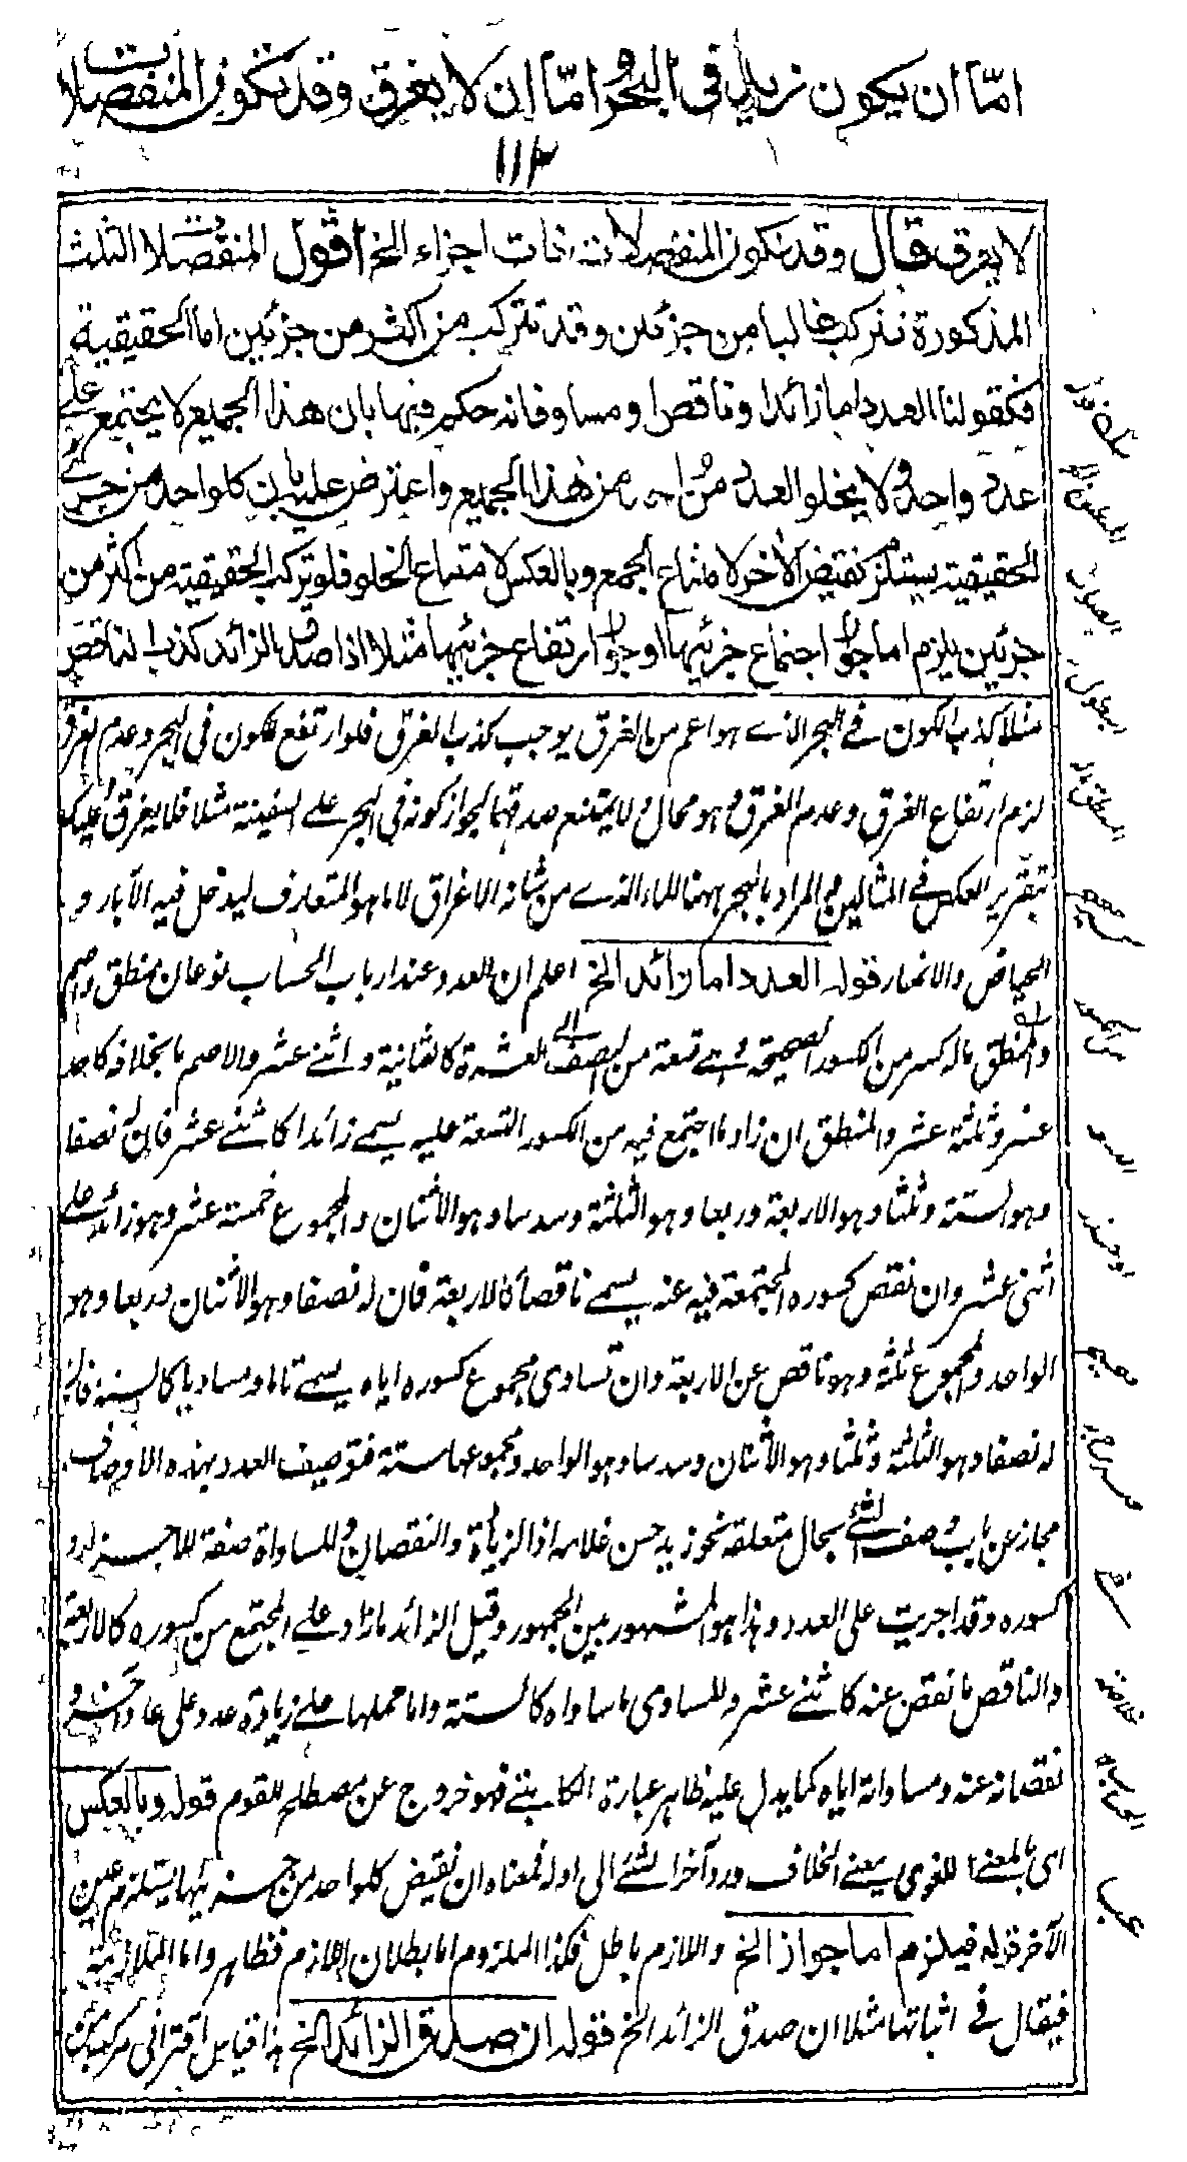 امّا ان يكون زيد فى البحر وامّا ان لا يغرق وقد تكون المنفصلات
١١٣
لا يغرق قال وقد تكون المنفصلات ذات اجزاء الخ اقول المنفصلات الثلث
المذكورة تتركب غالبا من جزئين وقد تتركب من اكثر من جزئين اما الحقيقية
فكقولنا العدد اما زائد او ناقص او مساو فانه حكم فيها بان هذا الجميع لا يجتمع على
عدد واحد ولا يخلو العدد من احد من هذا الجميع واعترض عليه بان كل واحد من جزئى
الحقيقية يستلزم نقيض الآخر لامتناع الجمع وبالعكس لامتناع الخلو فلو تركب الحقيقية من اكثر من
جزئين يلزم اما جواز اجتماع جزئيها او جواز ارتفاع جزئيها مثلا اذا صدق الزائد كذب الناقص
مثلا كذب الكون فے البحر الذے هو اعم من الغرق يوجب كذب الغرق فلو ارتفع الكون فى البحر وعدم الغرق
لزم ارتفاع الغرق وعدم الغرق وهو محال ولا يمتنع صدقهما لجواز كونه فى البحر علے السفينة مثلا فلا يغرق وعليك
بتقرير العكس فے المثالين والمراد بالبحر ههنا الماء الذے من شانه الاغراق لا ما هو المتعارف ليدخل فيه الآبار و
الحياض والانهار قوله العدد اما زائد الخ اعلم ان العدد عند ارباب الحساب نوعان منطق واصم
والمنطق ما له كسر من الكسور الصحيحة وهے تسعة من النصف الے العشرة كالثمانية واثنے عشر والاصم ما بخلافه كاحد
عشر وثلثة عشر والمنطق ان زاد ما اجتمع فيه من الكسور التسعة عليه يسمے زائدا كاثنے عشر فان له نصفا
وهو الستة وثلثا وهو الاربعة وربعا وهو الثلثة وسدسا وهو الاثنان والمجموع خمسة عشر وهو زائد علے
اثنى عشر وان نقص كسوره المجتمعة فيه عنه يسمے ناقصا كالاربعة فان له نصفا وهو الاثنان وربعا وهو
الواحد والمجموع ثلثة وهو ناقص عن الاربعة وان تساوى مجموع كسوره اياه يسمے تاما ومساويا كالستة فان
له نصفا وهو الثلثة وثلثا وهو الاثنان وسدسا وهو الواحد ومجموعها ستة فتوصيف العدد بهذه الاوصاف
مجاز من باب وصف الشئ بحال متعلقه نحو زيد حسن غلامه اذ الزيادة والنقصان والمساواة صفة
كسوره وقد اجريت على العدد وهذا هو المشهور بين الجمهور وقيل الزائد ما زاد علے المجتمع من كسوره كالاربعة
والناقص ما نقص عنه كاثنے عشر والمساوى ما ساواه كالستة واما حملها علے زيادة عدد على عاد
نقصانه عنه ومساواته اياه كما يدل عليه ظاهر عبارة الكاتبے فهو خروج عن مصطلح القوم قوله وبالعكس
اى بالمعنے اللغوى يعنے الخلاف ورد آخر الشئ الى اوله فمعناه ان نقيض كل واحد من جزئيها يستلزم عين
الآخر قوله فيلزم اما جواز الخ واللازم باطل فكذا الملزوم اما بطلان اللازم فظاهر واما الملازمة
فيقال فے اثباتها مثلا ان صدق الزائد الخ قوله ان صدق الزائد الخ هذا قياس اقترانى مركب من